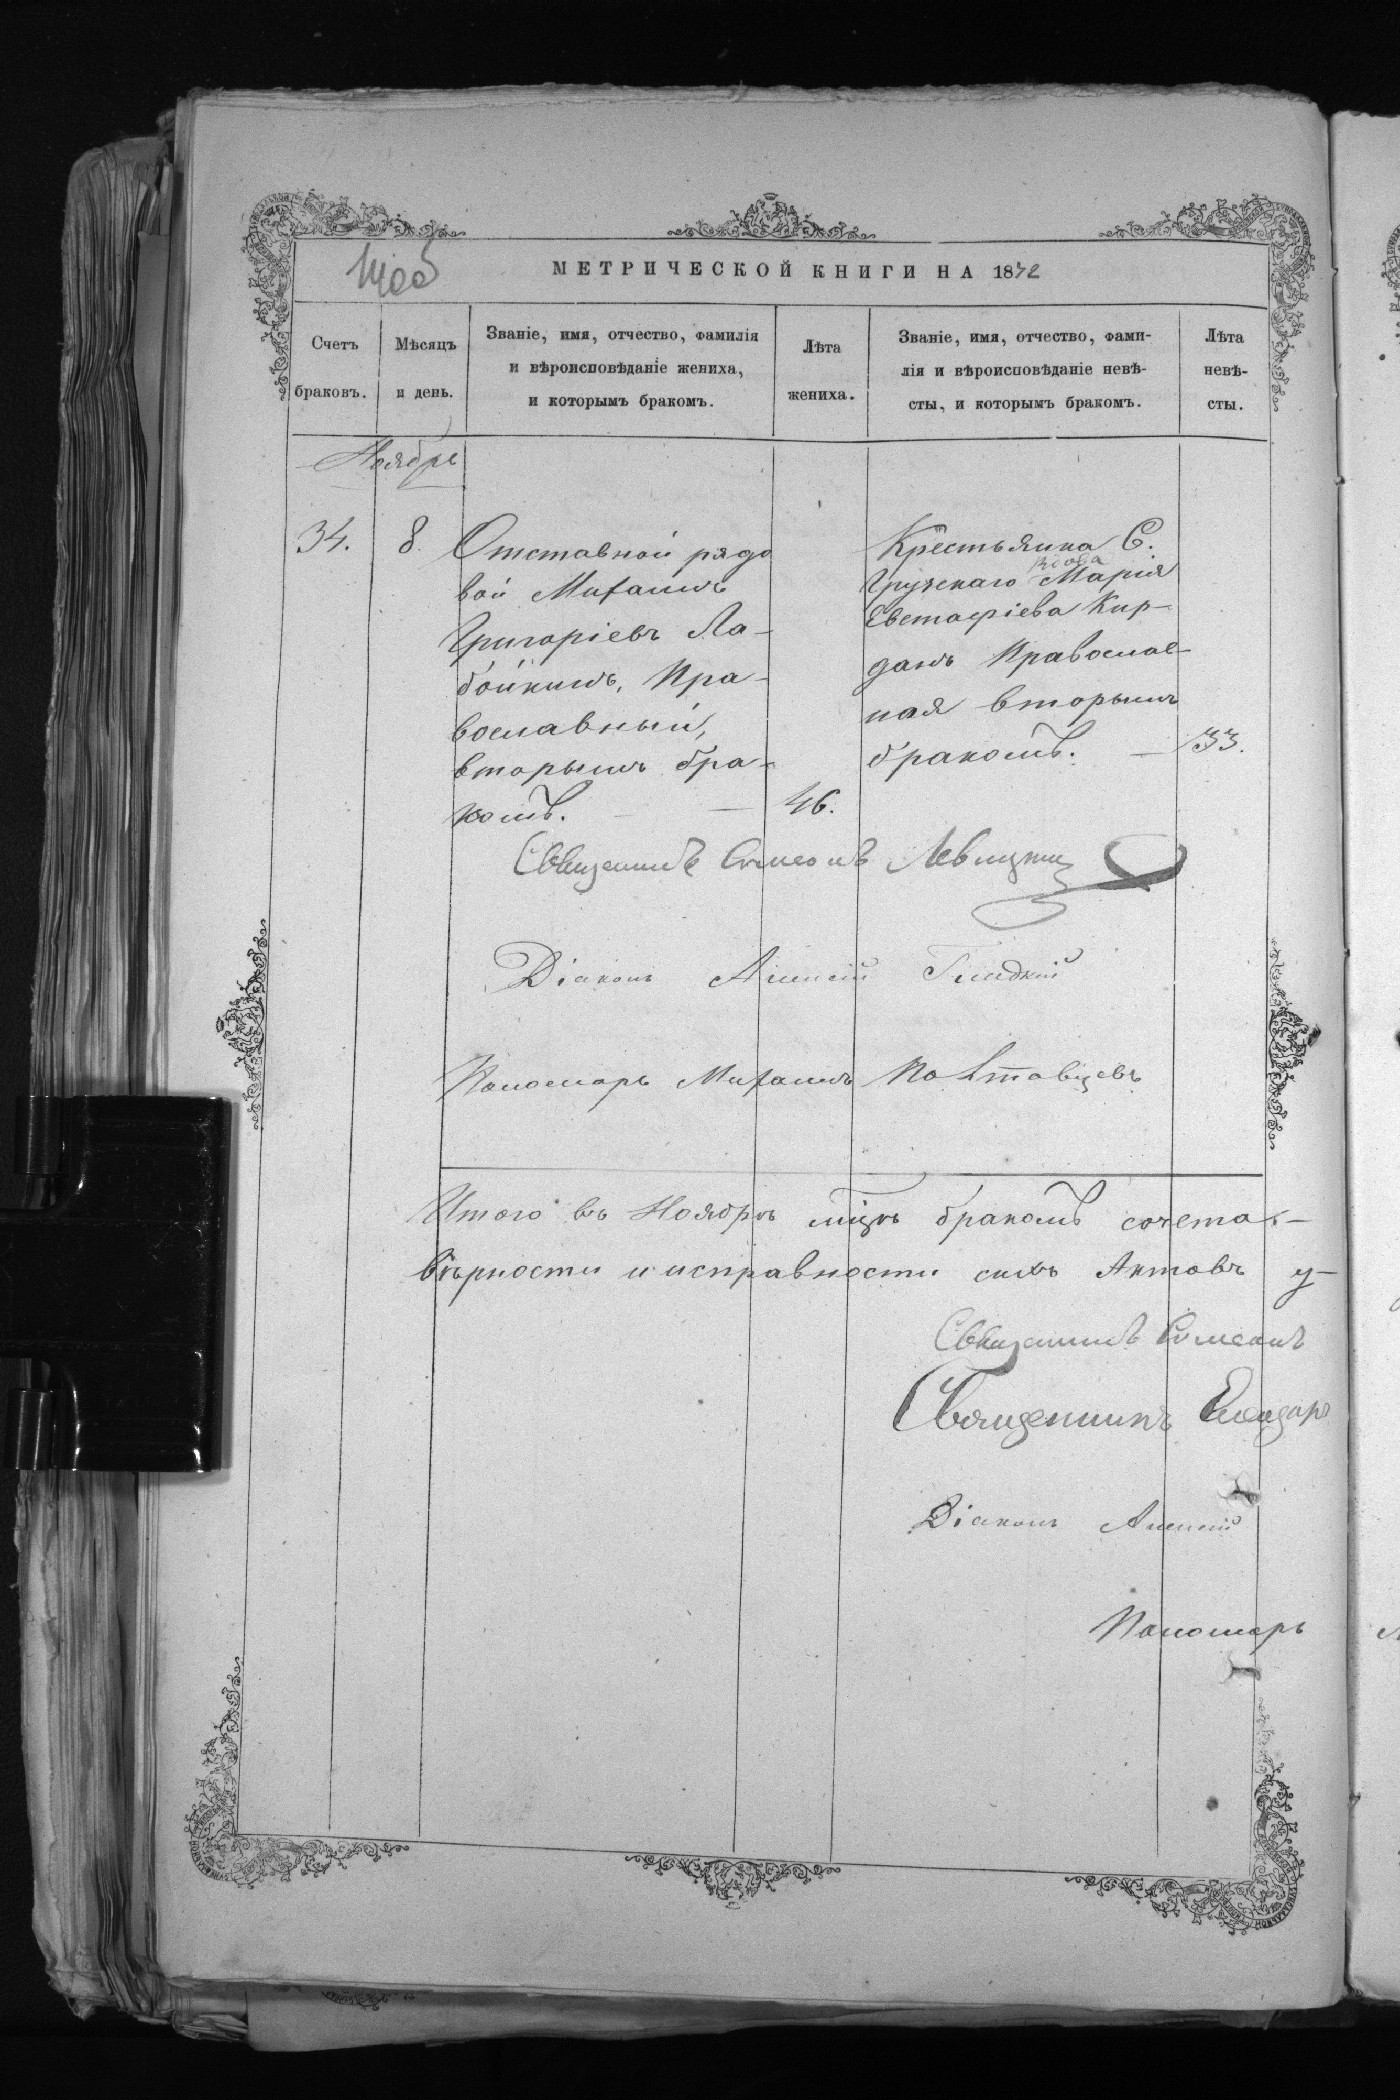 МЕТРИЧЕСКОЙ КНИГИ НА 1872
Счетъ браковъ.
Мѣсяцъ и день.
Званіе, имя, отчество, фамилія
и вѣроисповѣданіе жениха,
и которымъ бракомъ.
Лѣта жениха.
Званіе, имя, отчество, фами-
лія и вѣроисповѣданіе невѣ-
сты, и которымъ бракомъ.
Лѣта невѣ-
сты.
Ноябрь
34.
8.
Отставной рядо
вой Михаилъ
Григоріевъ Ла-
бойкинъ, Пра-
вославный,
вторымъ бра-
комъ.
46.
Крестьянка С.
вдова
Грузскаго Марія
Евстафіева Кир-
данъ Православ-
ная вторымъ
бракомъ.
33.
Священникъ Симеонъ Левицкій
Діаконъ Алексій Гладкій
Пономарь Михаилъ Полтавцевъ
Итого въ Ноябрѣ мѣцѣ бракомъ сочета-
вѣрности и исправности сихъ Актовъ у-
Священникъ Симеонъ
Священникъ
Діаконъ Алексій
Пономарь